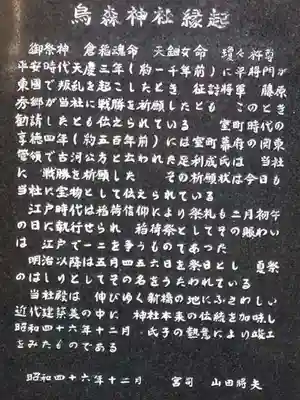 烏森神社縁起
御祭神 倉稲魂命 天鈿女命 瓊々杵尊
平安時代天慶三年（約一千年前）に平将門が
東國で叛乱を起こしたとき 征討将軍 藤原
秀郷が当社に戦勝を祈願したとも このとき
勧請したとも伝えられている 室町時代の
享徳四年（約五百年前）には室町幕府の関東
管領で古河公方と云われた足利成氏は 当社
に 戦勝を祈願した その祈願状は今日も
当社に宝物として伝えられている
江戸時代は稲荷信仰により祭礼も二月初午
の日に執行せられ 稲荷祭としてその賑わい
は 江戸で一二を争うものであつた
明治以降は五月四五六日を祭日とし 夏祭
のはしりとしてその名をうたわれている
当社殿は 伸びゆく新橋の地にふさわしい
近代建築美の中に 神社本来の伝統を加味し
昭和四十六年十二月 氏子の熱意により竣工
をみたものである
昭和四十六年十二月 宮司 山田勝夫